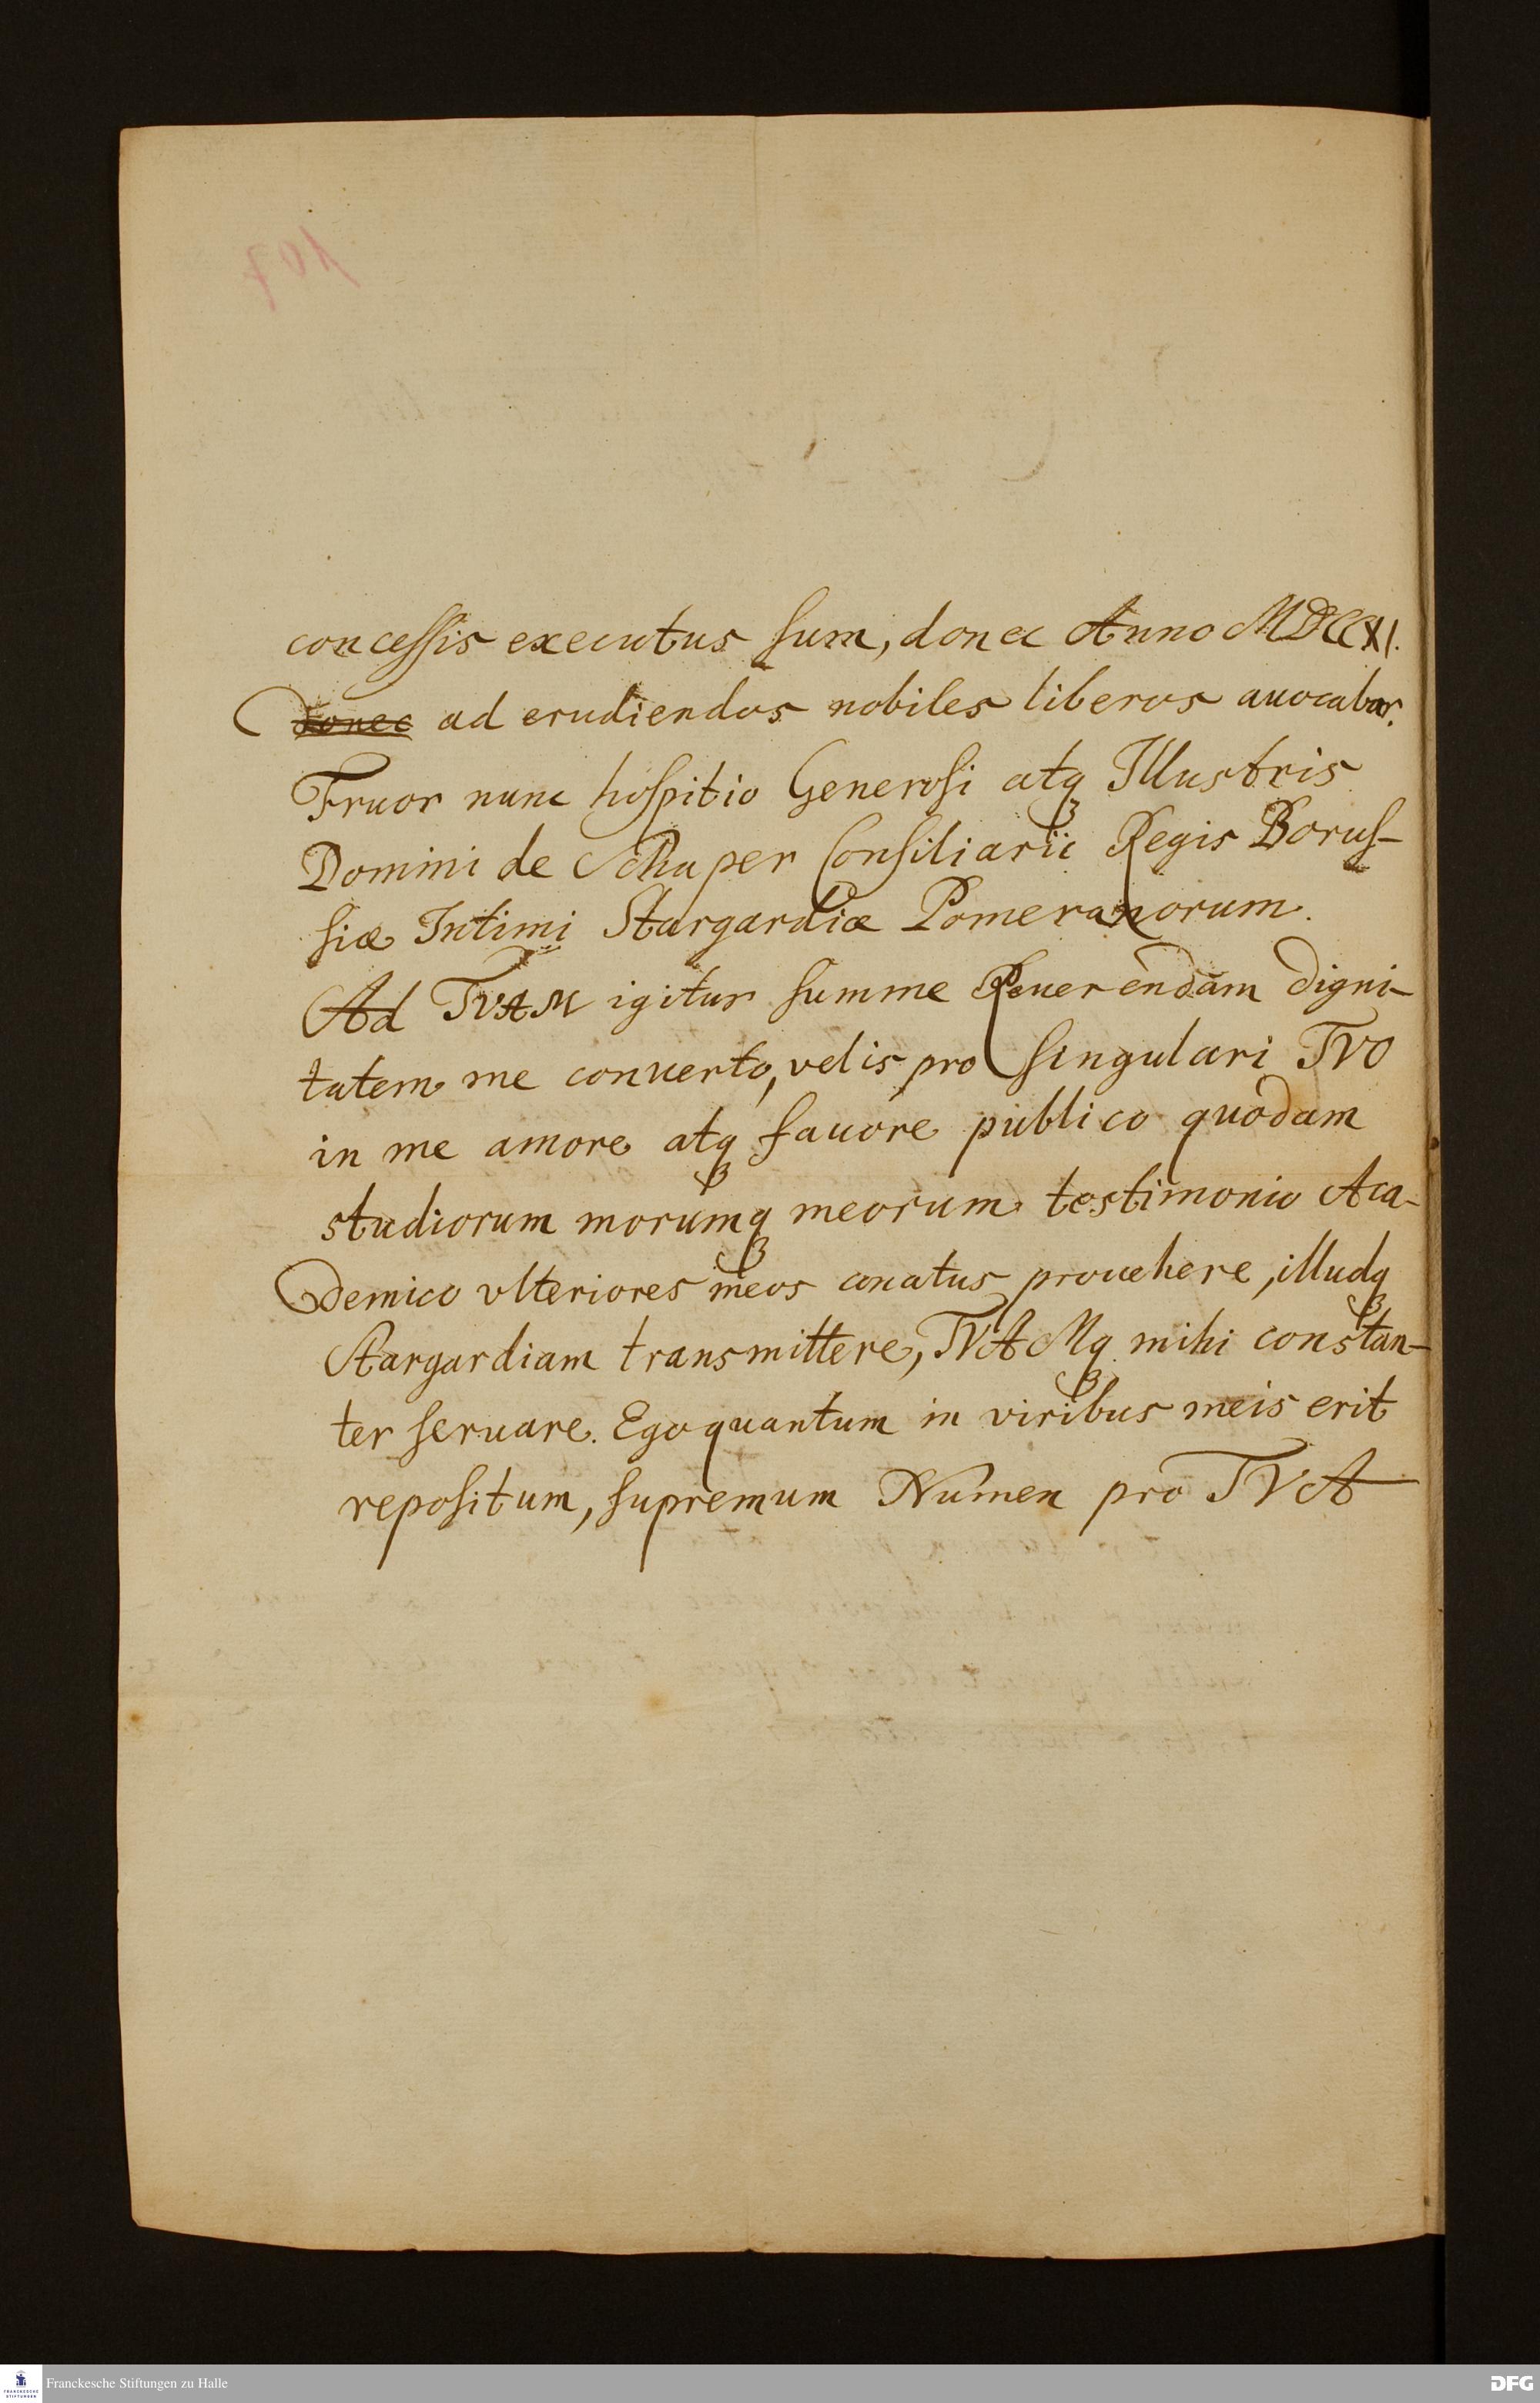 concessis executus sum, donec Anno MDCCXI.
donec ad erudiendos nobiles liberos auocabar.
Fruor nunc hospitio Generosi atq₃ Illustris
Domini de Schaper Consiliarii Regis Borus-
siæ Intimi Stargardiæ Pomeranorum.
Ad TVAM igitur summe Reuerendam Digni-
tatem me conuerto, velis pro singulari TVO
in me amore atq₃ fauore publico quodam
studiorum morumq₃ meorum testimonio Aca-
demico vlteriores meos conatus prouehere, illudq₃
Stargardiam transmittere, TVAMq₃ mihi constan-
ter seruare. Ego quantum in viribus meis erit
repositum, supremum Numen pro TVA
Franckesche Stiftungen zu Halle
DFG